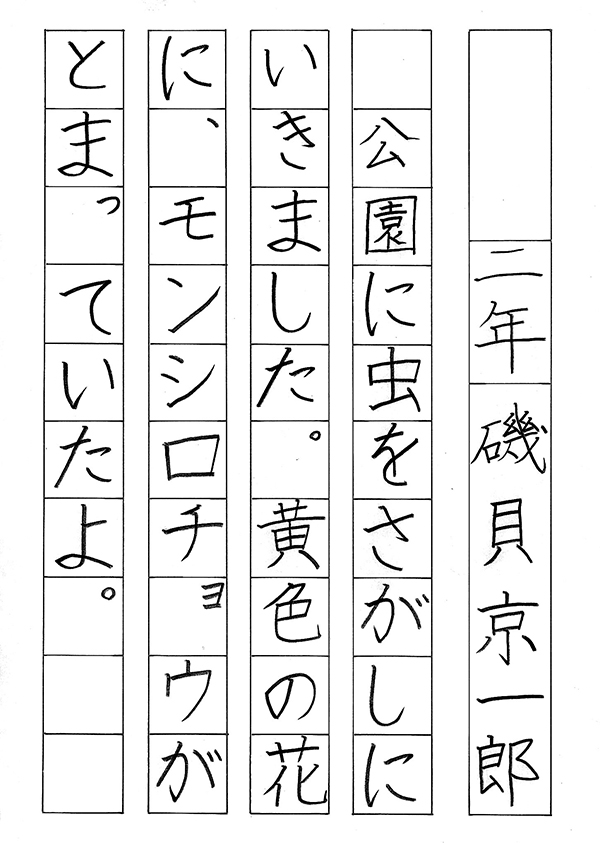 二年 磯貝京一郎
　公園に虫をさがしに
いきました。黄色の花
に、モンシロチョウが
とまっていたよ。